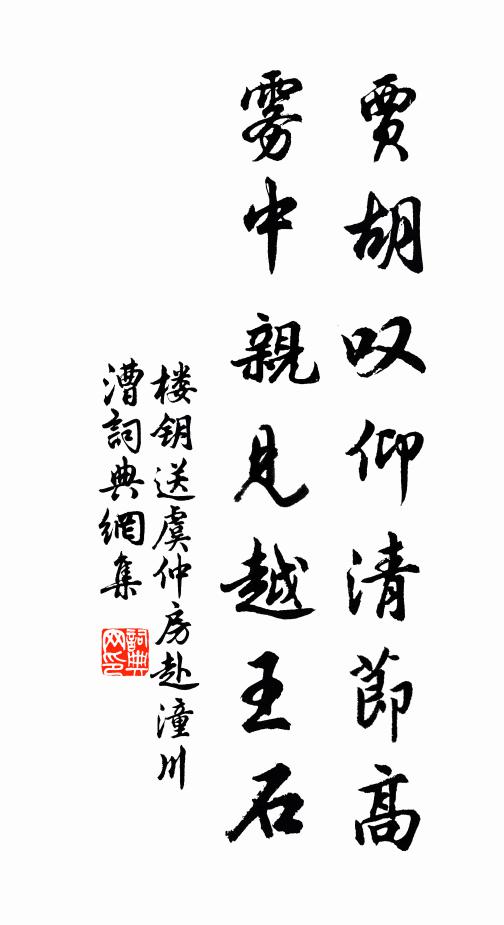 賈胡叹仰清節高
雾中親見越王石
楼钥送虞仲房赴潼川
漕詞典網集
詞典网印